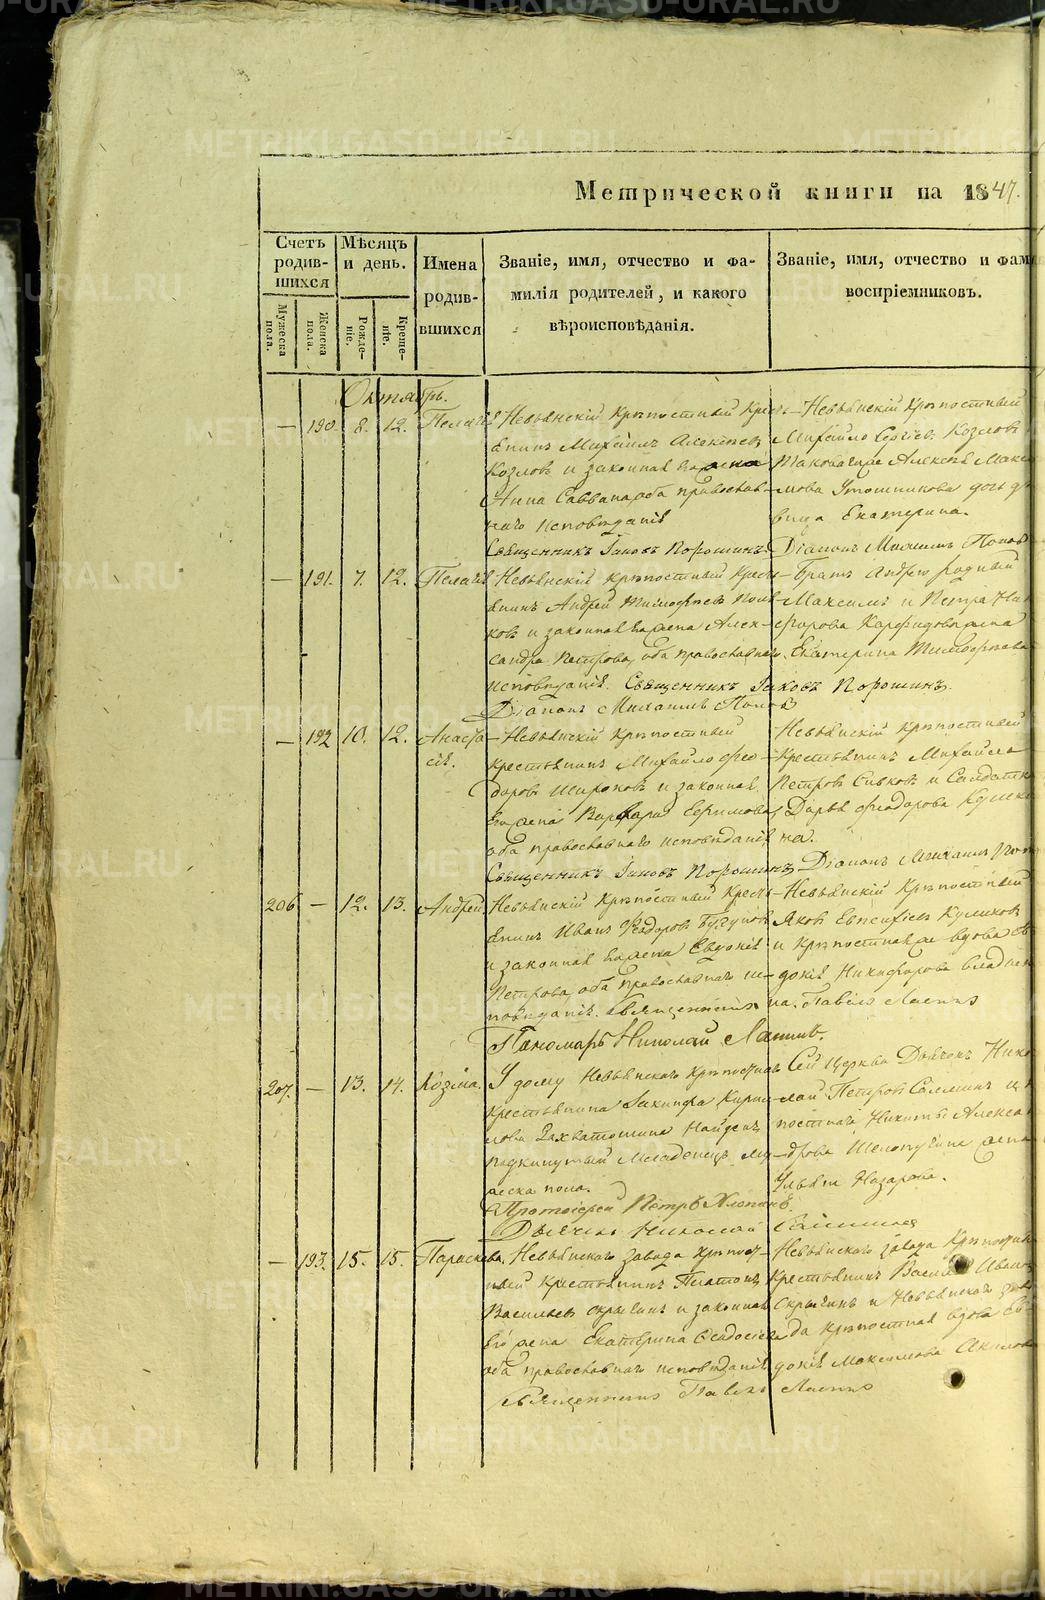 Метрической книги на 1847.
Счетъ родившихся
Мѣсяцъ и день.
Имена родившихся
Званіе, имя, отчество и фамилія родителей, и какого вѣроисповѣданія.
Званіе, имя, отчество и фам
воспріемниковъ.
Мужеска пола.
Женска пола.
Рожденіе.
Крещеніе.
Октябрь.
— 190. 8. 12. Пелагія
Невьянскій крѣпостный кресть-
янинъ Михайлъ Алексѣевъ
Козловъ и законная жена
Анна Саввина, оба православ-
наго исповѣданія
Священникъ Іаковъ Порошинъ.
Невьянскій крѣпостный
Михайло Сергіевъ Козловъ
такова же Алексѣя Макси
мова дочь дѣ
вица Екатерина.
Діаконъ Михаилъ Поповъ
— 191. 7. 12. Пелагія
Невьянскій крѣпостный кресть-
янинъ Андрей Тимофѣевъ
ковъ и законная жена Алек-
сандра Петрова, оба православнаго
исповѣданія. Священникъ Іаковъ Порошинъ.
Діаконъ Михаилъ Поповъ
Братъ Андрею родный
Максимъ и Петра Ни
форова жена
Екатерина Тимофѣева
— 192 10. 12. Анаста-
сія.
Невьянскій крѣпостный
крестьянинъ Михайло Фео-
доровъ Широковъ и законная
его жена Варвара Ефимова,
оба православнаго исповѣданія
Священникъ Іаковъ Порошинъ
Невьянскій крѣпостный
крестьянинъ Михайла
Петровъ Сивковъ и Солдатка
Дарья Феодорова
на.
Діаконъ Михаилъ Поп
206 — 12. 13. Андрей
Невьянскій крѣпостный кресть-
янинъ Иванъ Феодоровъ
и законная жена Евдокія
Петрова, оба православнаго ис-
повѣданія. Священникъ
Пономарь Николай
Невьянскій крѣпостный
Яковъ Куликовъ
и крѣпостная же вдова Ев
докія Никифорова
на. Павелъ
207. — 13. 14. Козма.
У дому Невьянскаго крѣпостнаго
крестьянина Іакинфа Кирил-
лова найденъ
подкинутый младенецъ му-
жеска пола.
Протоіерей Петръ Хлопинъ
Дьячекъ Николай
Сей Церкви Дьячекъ Нико
лай Петровъ и кр
постнаго Никиты Алексан
дрова жена
Ульяна Назарова.
— 193. 15. 15. Параскева.
Невьянскаго завода крѣпост-
ный крестьянинъ Платонъ
Васильевъ Скрыгинъ и законная
его жена Екатерина
оба православнаго исповѣданія
Священникъ Павелъ
Невьянскаго завода крѣпостный
крестьянинъ Василій Иван
Скрыгинъ и Невьянскаго за
да крѣпостная вдова Ев
докія Максимова